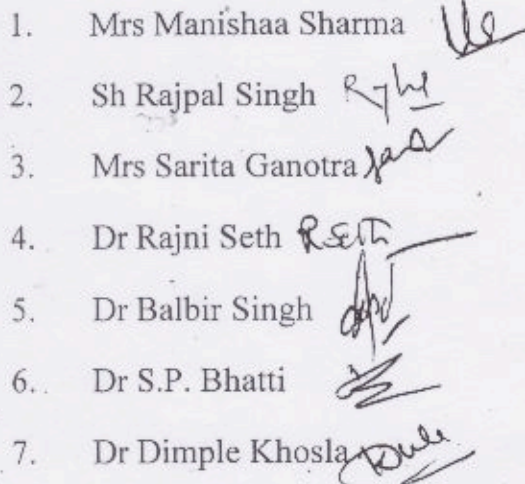 1. Mrs Manishaa Sharma
2. Sh Rajpal Singh
3. Mrs Sarita Ganotra
4. Dr Rajni Seth RSeth
5. Dr Balbir Singh
6.. Dr S.P. Bhatti
7. Dr Dimple Khosla